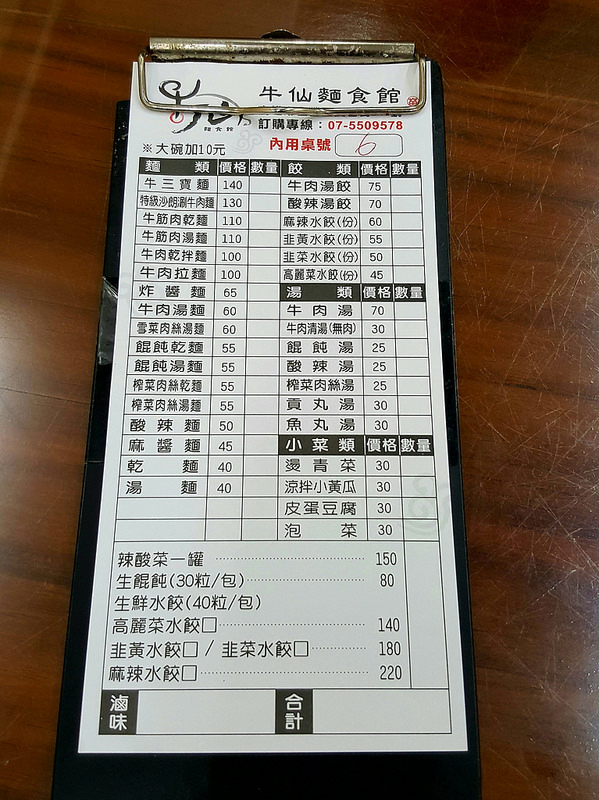 牛仙麵食館
麵食館
訂購專線：07-5509578
※大碗加10元 內用桌號 6
麵 類 價格 數量 餃 類 價格 數量
牛三寶麵 140 牛肉湯餃 75
特級沙朗涮牛肉麵 130 酸辣湯餃 70
牛筋肉乾麵 110 麻辣水餃(份) 60
牛筋肉湯麵 110 韭黃水餃(份) 55
牛肉乾拌麵 100 韭菜水餃(份) 50
牛肉拉麵 100 高麗菜水餃(份) 45
炸醬麵 65 湯 類 價格 數量
牛肉湯麵 60 牛肉湯 70
雪菜肉絲湯麵 60 牛肉清湯(無肉) 30
餛飩乾麵 55 餛飩湯 25
餛飩湯麵 55 酸辣湯 25
榨菜肉絲乾麵 55 榨菜肉絲湯 25
榨菜肉絲湯麵 55 貢丸湯 30
酸辣麵 50 魚丸湯 30
麻醬麵 45 小菜類 價格 數量
乾 麵 40 燙青菜 30
湯 麵 40 涼拌小黃瓜 30
皮蛋豆腐 30
泡 菜 30
辣酸菜一罐 150
生餛飩(30粒/包) 80
生鮮水餃(40粒/包)
高麗菜水餃□ 140
韭黃水餃□ / 韭菜水餃□ 180
麻辣水餃□ 220
滷味 合計